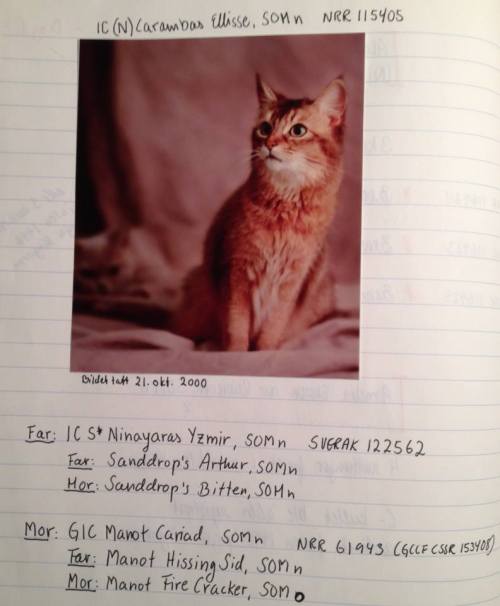 IC (N) Carambas Ellisse, SOMn NRR 115405
Bildet tatt 21. okt. 2000
Far: IC S* Ninayaras Yzmir, SOMn SVERAK 122562
Far: Sanddrop's Arthur, SOMn
Mor: Sanddrop's Bitten, SOMn
Mor: GIC Manot Cariad, SOMn NRR 61943 (GCCF CSSR 153408)
Far: Manot Hissing Sid, SOMn
Mor: Manot Fire Cracker, SOMo